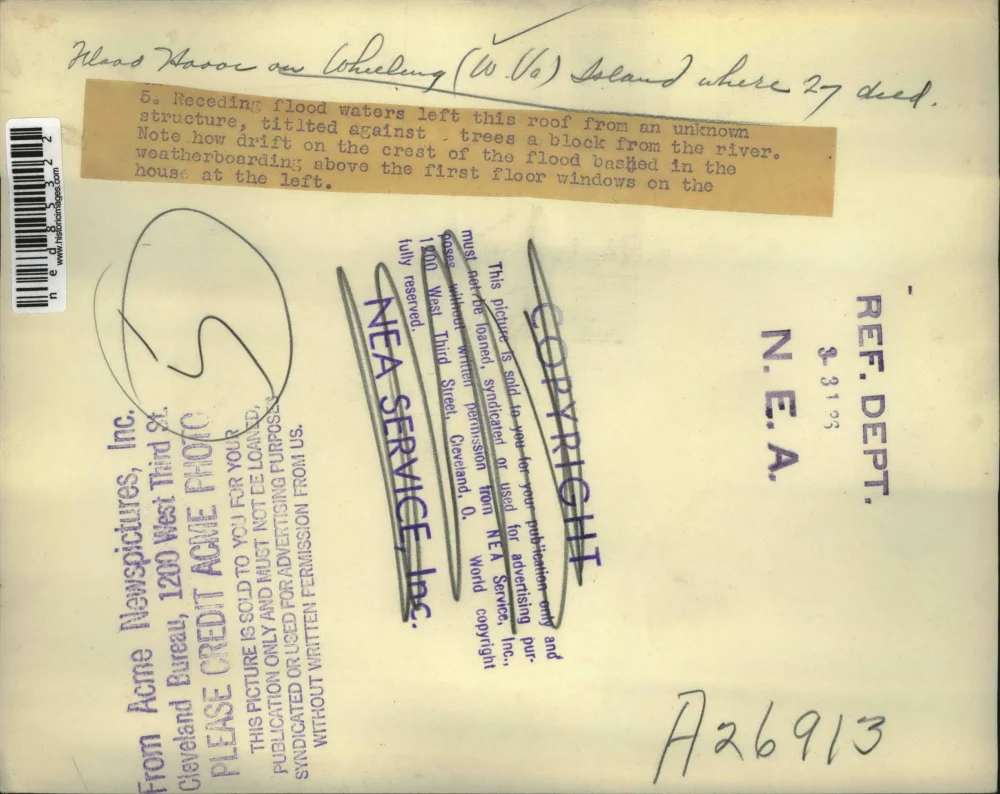 Flood Havoc on Wheeling (W. Va) Island where 27 died.
5. Receding flood waters left this roof from an unknown
structure, titlted against trees a block from the river.
Note how drift on the crest of the flood bashed in the
weatherboarding above the first floor windows on the
house at the left.
ned85322
www.historicimages.com
5
From Acme Newspictures, Inc.
Cleveland Bureau, 1200 West Third St.
PLEASE CREDIT ACME PHOTO
THIS PICTURE IS SOLD TO YOU FOR YOUR
PUBLICATION ONLY AND MUST NOT BE LOANED,
SYNDICATED OR USED FOR ADVERTISING PURPOSES
WITHOUT WRITTEN PERMISSION FROM US.
COPYRIGHT
This picture is sold to you for your publication only and
must not be loaned, syndicated or used for advertising pur-
poses without written permission from NEA Service, Inc.,
1200 West Third Street, Cleveland, O. World copyright
fully reserved.
NEA SERVICE, Inc.
REF. DEPT.
N. E. A.
A26913